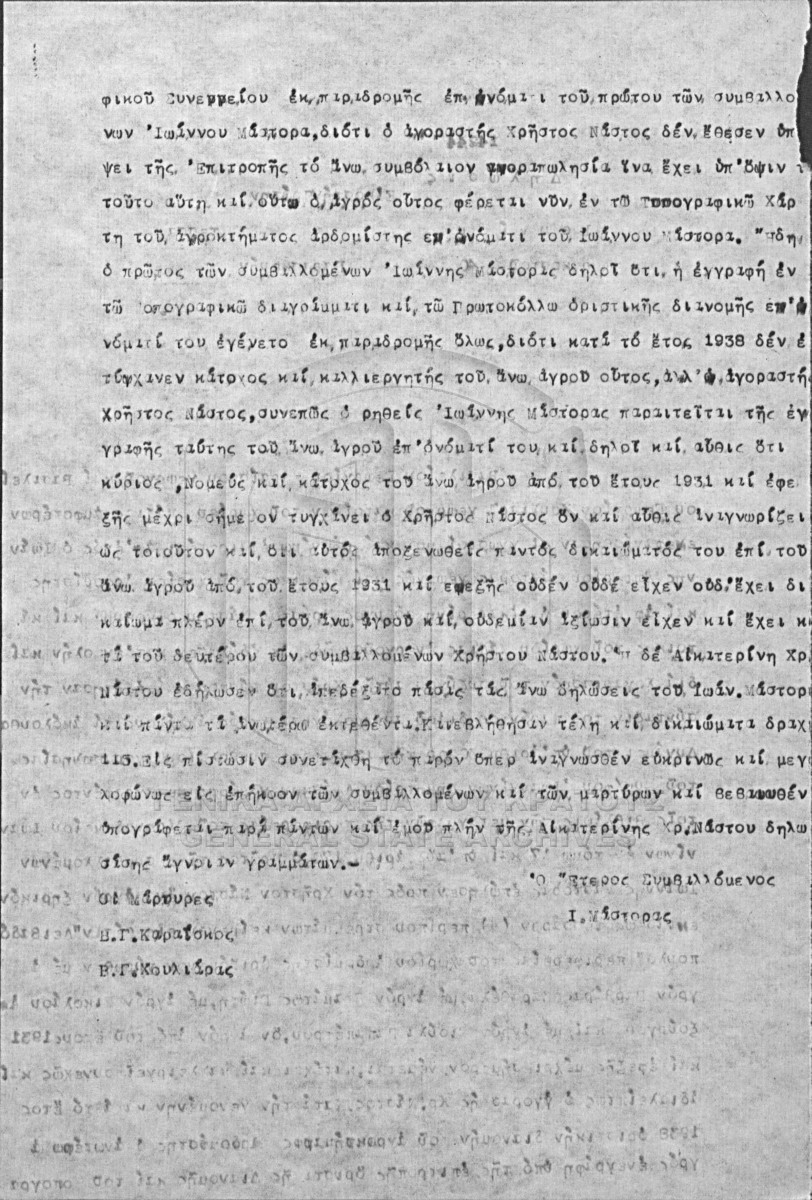 φικοῦ Συνεργείου ἐκ παραδρομῆς ἐπ' ὀνόματι τοῦ πρώτου τῶν συμβαλλο
νων Ἰωάννου Μάστορα, διότι ὁ ἀγοραστής Χρῆστος Νάστος δέν ἔθεσεν ὑπ
ψει τῆς Ἐπιτροπῆς τό ἄνω συμβόλαιον ἀγοραπωλησία ἵνα ἔχει ὑπ' ὄψιν
τοῦτο αὕτη καί οὕτω ὁ ἀγρός οὗτος φέρεται νῦν ἐν τῶ Τοπογραφικῶ Χάρ
τη τοῦ ἀγροκτήματος Ἀρδομίστης ἐπ' ὀνόματι τοῦ Ἰωάννου Μάστορα. Ἤδη
ὁ πρῶτος τῶν συμβαλλομένων Ἰωάννης Μάστορας δηλοῖ ὅτι ἡ ἐγγραφή ἐν
τῶ τοπογραφικῶ διαγράμματι καί τῶ Πρωτοκόλλω ὁριστικῆς διανομῆς ἐπ' ὀ
νόματί του ἐγένετο ἐκ παραδρομῆς ὅλως, διότι κατά τό ἔτος 1938 δέν ἐ
τύγχανεν κάτοχος καί καλλιεργητής τοῦ ἄνω ἀγροῦ οὗτος, ἀλλ' ὁ ἀγοραστή
Χρῆστος Νάστος, συνεπῶς ὁ ρηθείς Ἰωάννης Μάστορας παραιτεῖται τῆς ἐγ
γραφῆς ταύτης τοῦ ἄνω ἀγροῦ ἐπ' ὀνόματί του καί δηλοῖ καί αὖθις ὅτι
κύριος, Νομεύς καί κάτοχος τοῦ ἄνω ἀγροῦ ἀπό τοῦ ἔτους 1931 καί ἐφε
ξῆς μέχρι σήμερον τυγχάνει ὁ Χρῆστος Νάστος ὅν καί αὖθις ἀναγνωρίζει
ὡς τοιοῦτον καί ὅτι αὐτός ἀποξενωθείς παντός δικαιώματός του ἐπί τοῦ
ἄνω ἀγροῦ ἀπό τοῦ ἔτους 1931 καί ἐφεξῆς οὐδέν οὐδέ εἶχεν οὐδ' ἔχει δι
καίωμα πλέον ἐπί τοῦ ἄνω ἀγροῦ καί οὐδεμίαν ἀξίωσιν εἶχεν καί ἔχει κ
τά τοῦ δευτέρου τῶν συμβαλλομένων Χρήστου Νάστου. Ἡ δέ Αἰκατερίνη Χρ
Νάστου ἐδήλωσεν ὅτι ἀπεδέξατο πάσας τάς ἄνω δηλώσεις τοῦ Ἰωάν. Μάστορα
καί πάντα τά ἀνωτέρω ἐκτεθέντα. Κατεβλήθησαν τέλη καί δικαιώματα δραχ
113. Εἰς πίστωσιν συνετάχθη τό παρόν ὅπερ ἀναγνωσθέν εὐκρινῶς καί μεγ
λοφώνως εἰς ἐπήκοον τῶν συμβαλλομένων καί τῶν μαρτύρων καί βεβαιωθέν
ὑπογράφεται παρά πάντων καί ἐμοῦ πλήν τῆς Αἰκατερίνης Χρ. Νάστου δηλω
σάσης ἄγνοιαν γραμμάτων.-
Ὁ Ἕτερος Συμβαλλόμενος
Οἱ Μάρτυρες
Ι. Μάστορας
Β.Γ. Καραΐσκος
Β.Γ. Χουλιάρας
ΓΕΝΙΚΑ ΑΡΧΕΙΑ ΤΟΥ ΚΡΑΤΟΥΣ
GENERAL STATE ARCHIVES